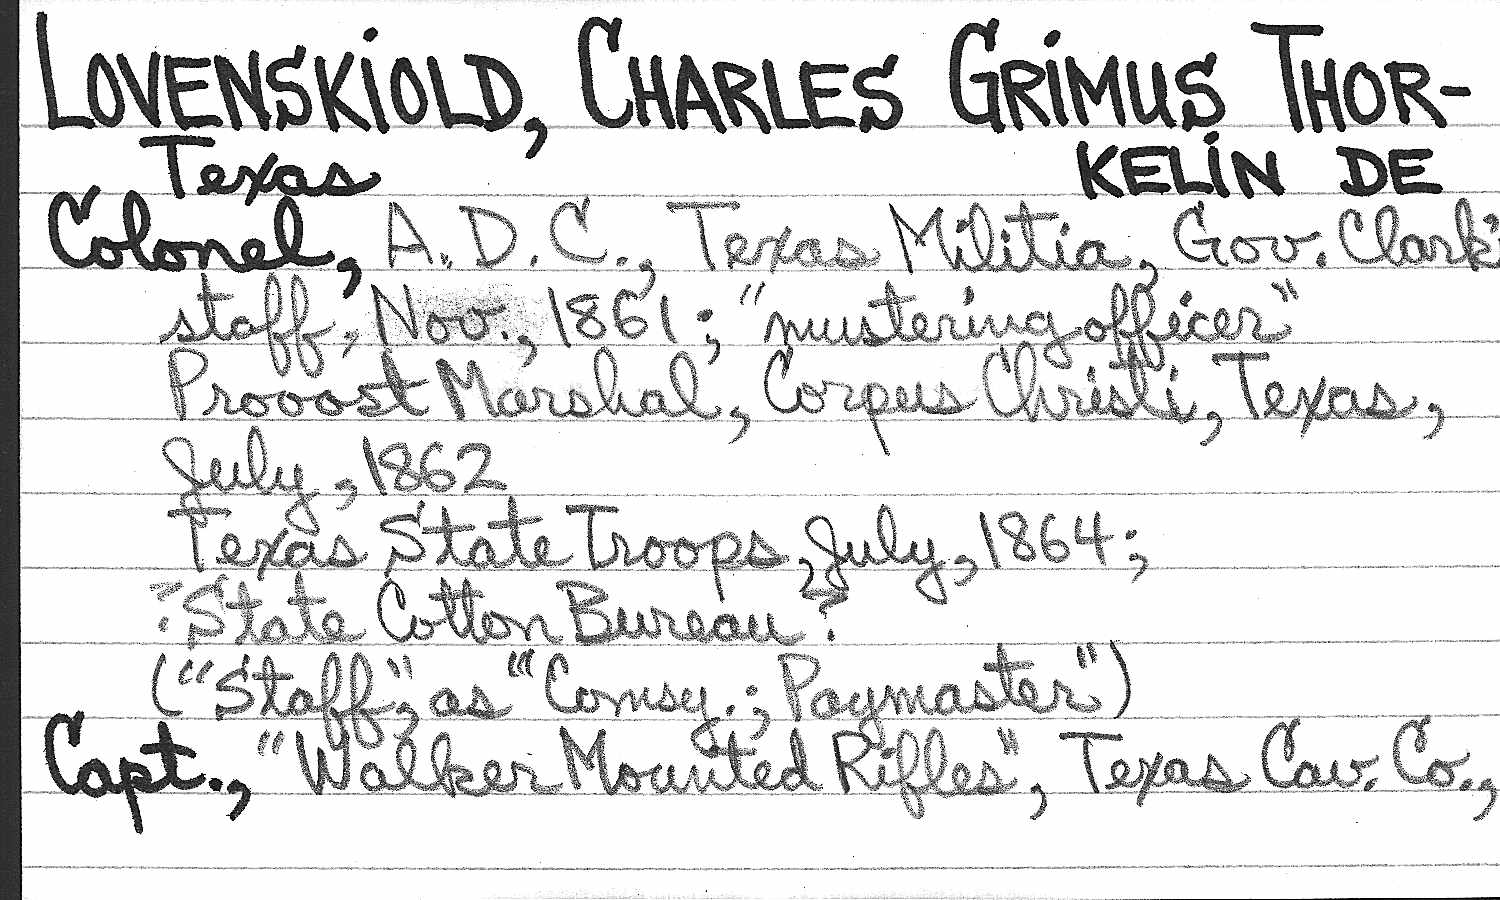 LOVENSKIOLD, CHARLES GRIMUS THOR-
Texas KELIN DE
Colonel, A.D.C., Texas Militia, Gov. Clark's
staff, Nov., 1861; "mustering officer"
Provost Marshal, Corpus Christi, Texas,
July, 1862
Texas State Troops, July, 1864;
"State Cotton Bureau"
("Staff", as "Comsy.; Paymaster")
Capt., "Walker Mounted Rifles", Texas Cav. Co.,